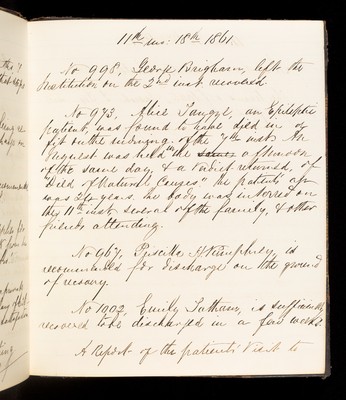 11th mo: 18th 1861
No 998, George Brigham, left the
Institution on the 2nd inst. recovered.
No 973, Alice an Epileptic
patient, was found to have died in a
fit on the morning of the 7th inst. An
Inquest was held the same afternoon
of the same day, & a Verdict returned, of
"Died of Natural Causes" the patients age
was 24 years. The body was interred on
the 11th inst. several of the family, & other
friends attending.
No 967, Priscilla Humphrey, is
recommended for discharge on the ground
of recovery.
No 1002, Emily Tatham, is sufficiently
recovered to be discharged in a few weeks.
A Report of the patients' Visit to